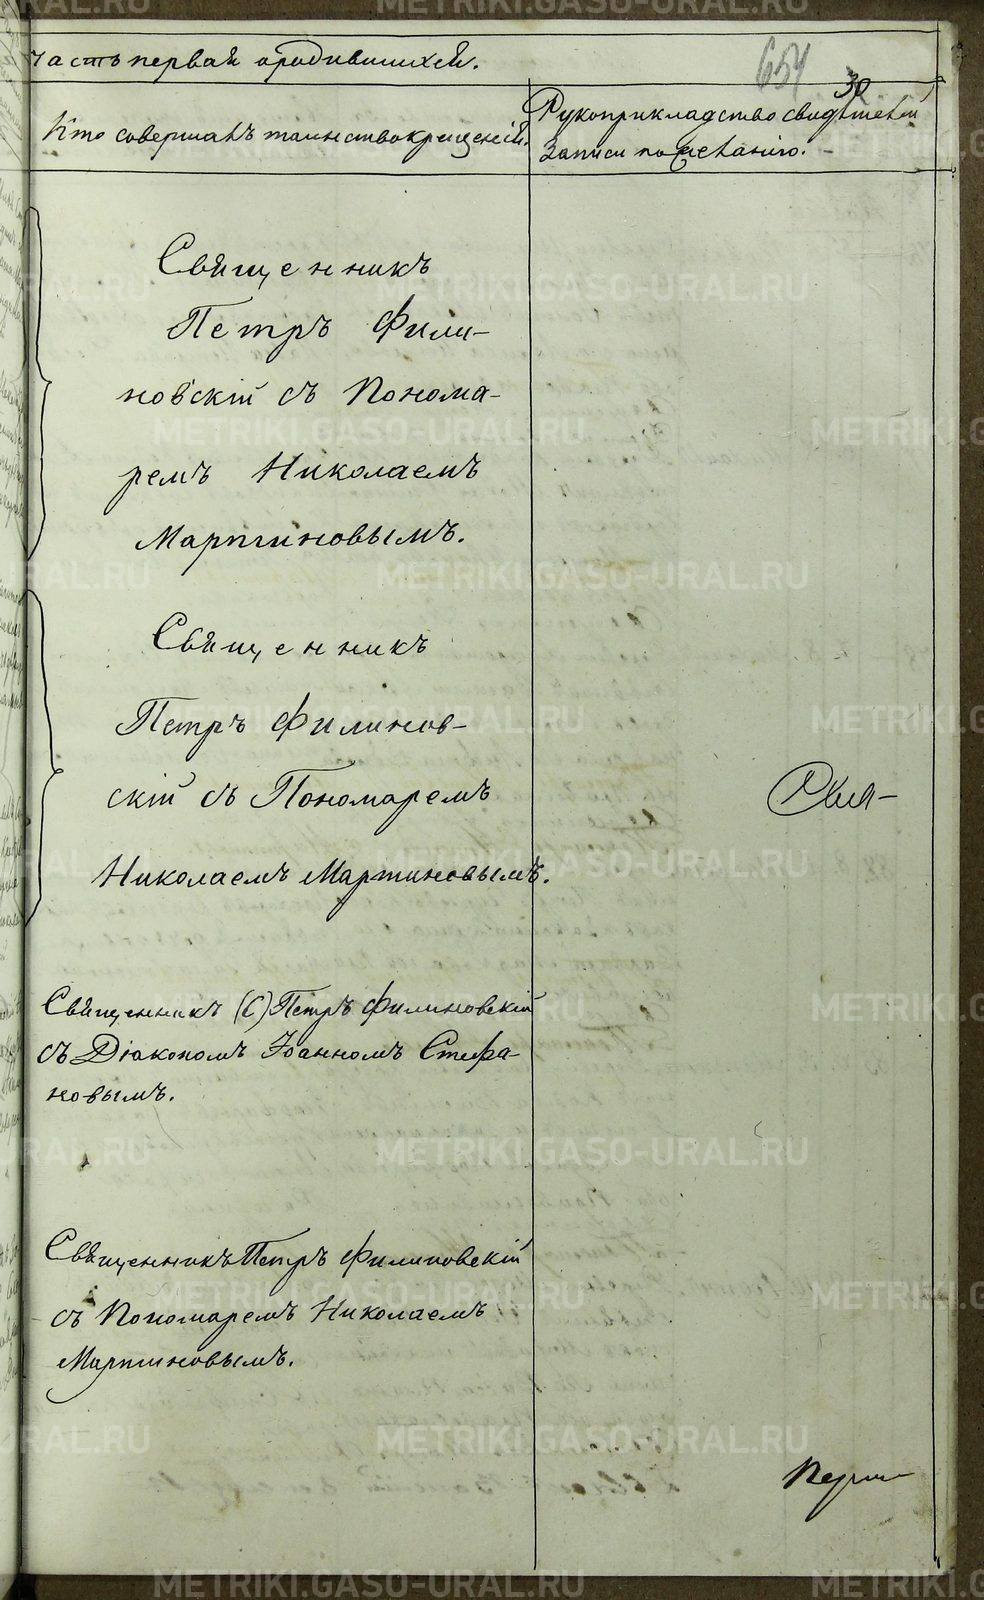 часть первая о родившихся.
654
30
Кто совершалъ таинство крещенія.
Рукоприкладство свидѣтелей
записи по желанію.
Священникъ
Петръ Фили-
новскій съ Понома-
ремъ Николаемъ
Мартиновымъ.
Священникъ
Петръ Филинов-
скій съ Пономаремъ
Николаемъ Мартиновымъ.
Священникъ (С) Петръ Филиновскій
съ Діакономъ Іоанномъ Стефа-
новымъ.
Священникъ Петръ Филиновскій
съ Пономаремъ Николаемъ
Мартиновымъ.
METRIKI.GASO-URAL.RU